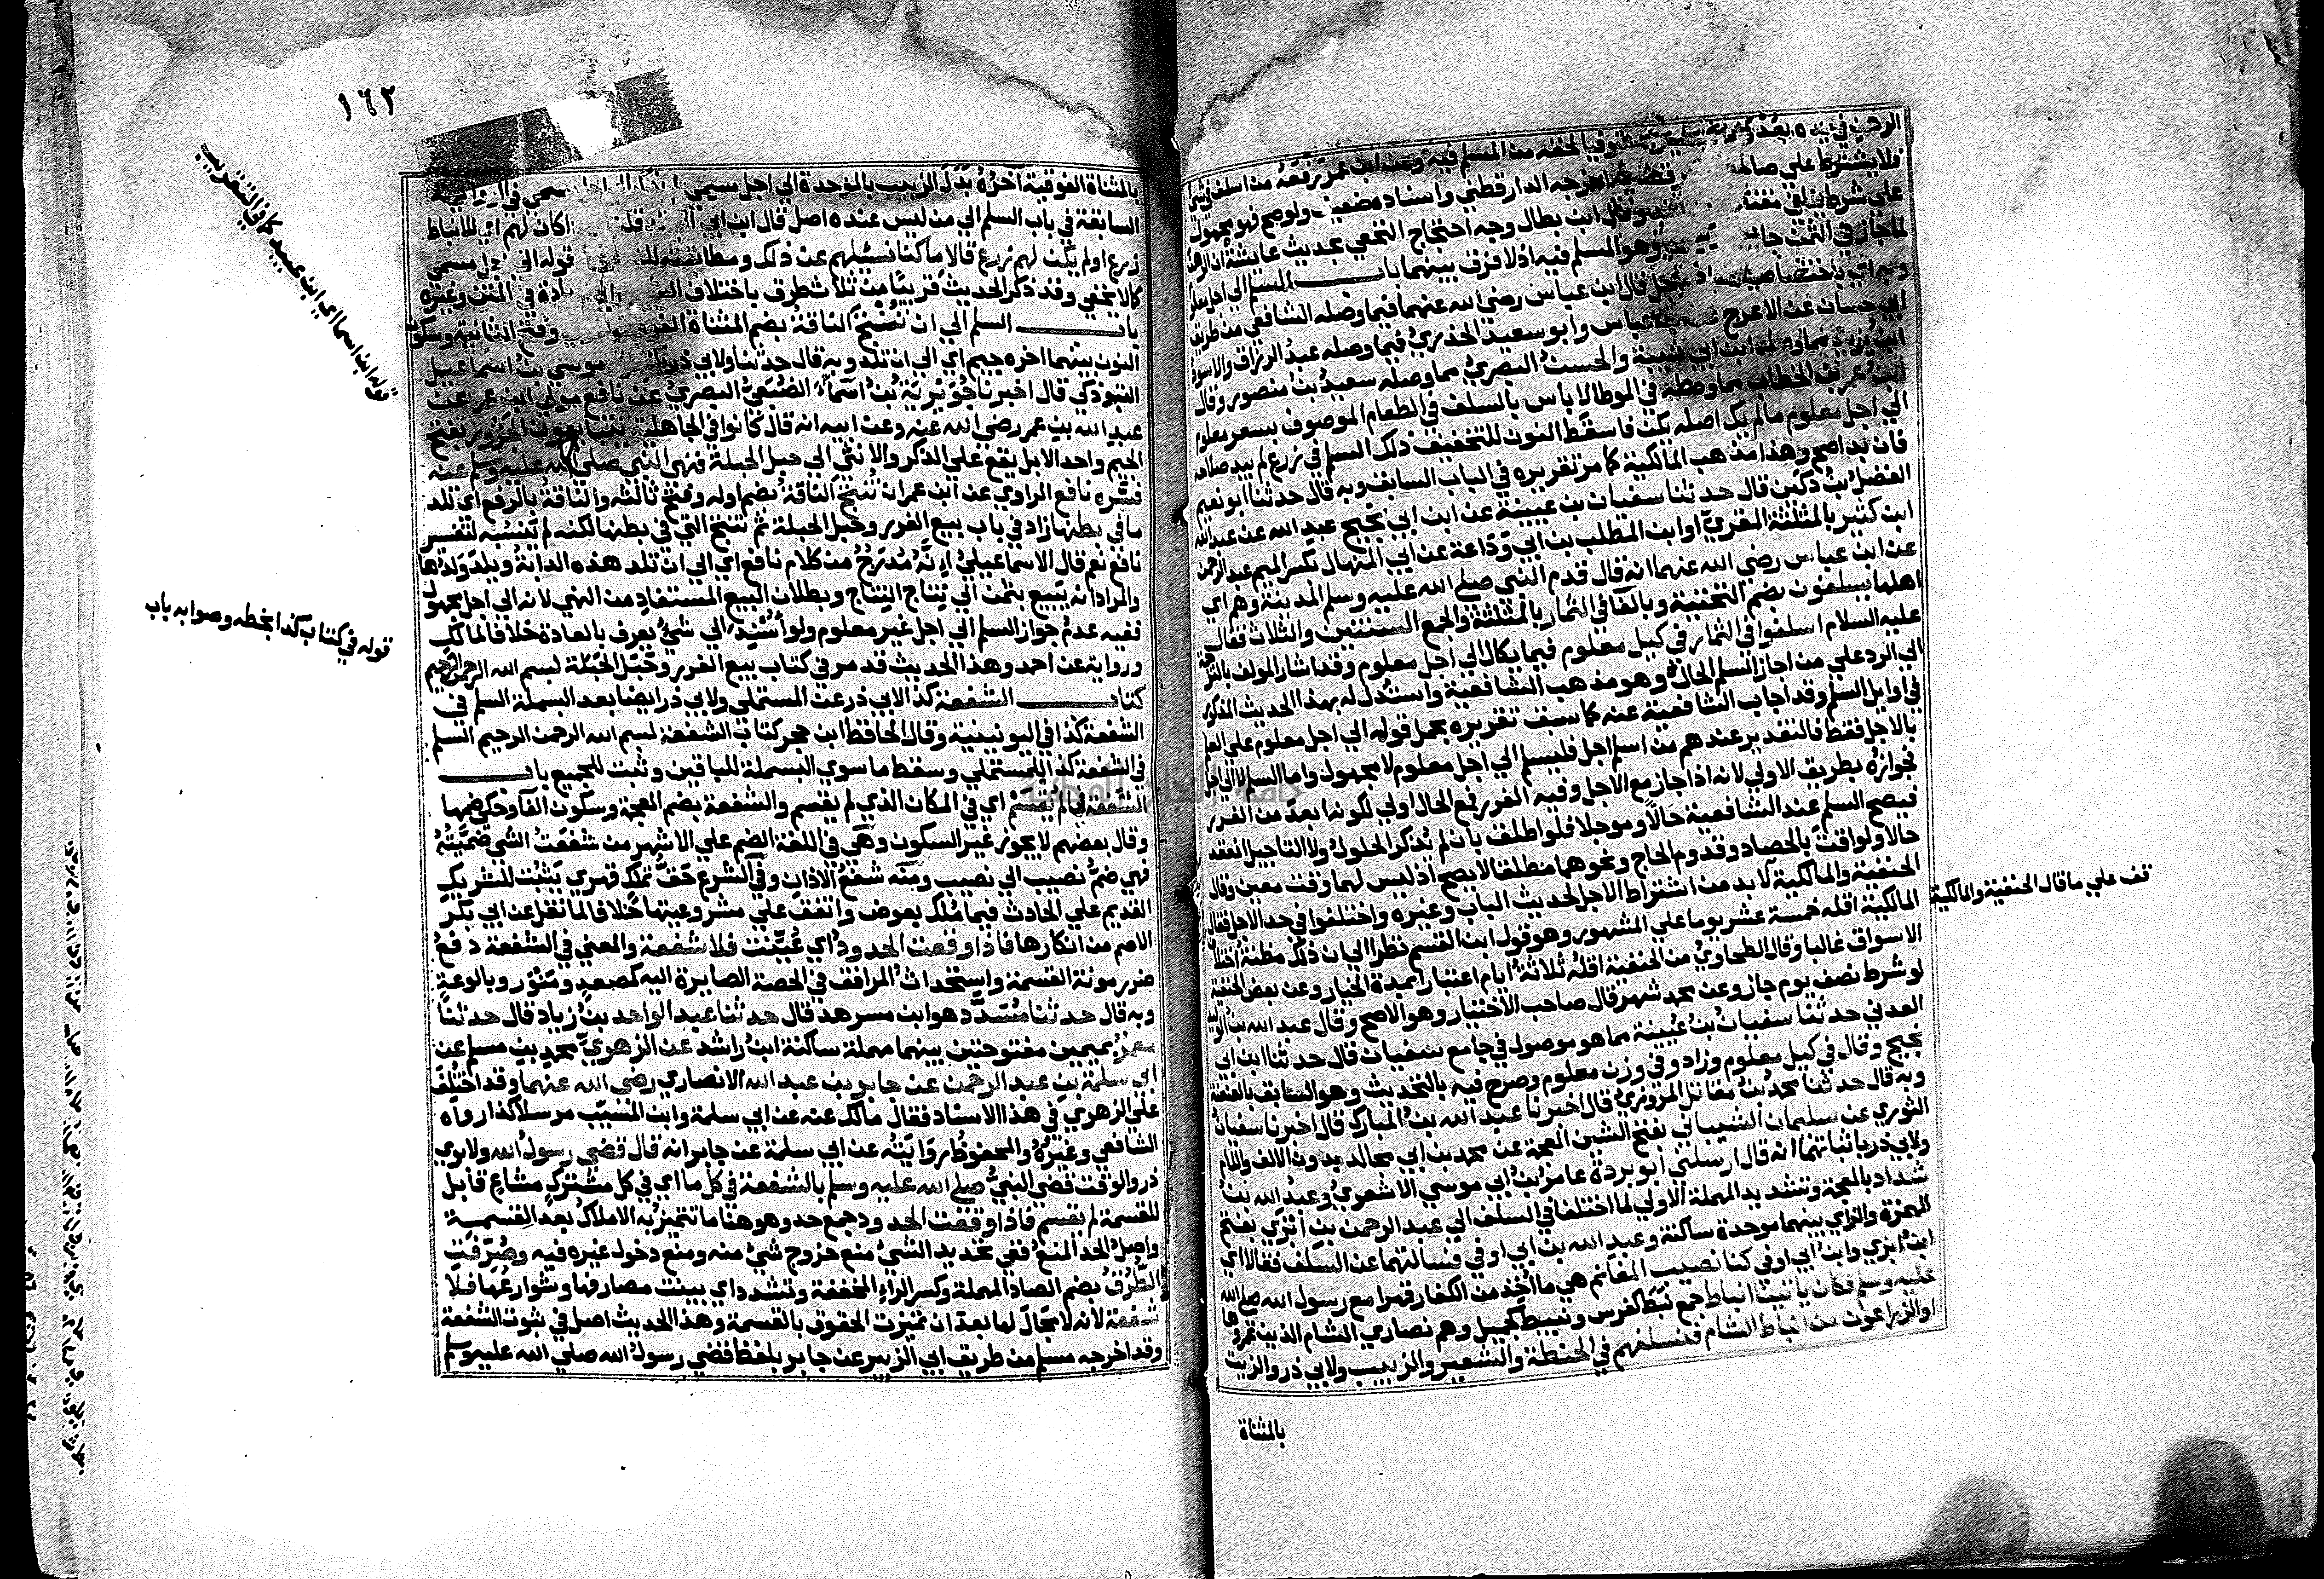 فلا يشترط علي صالحه اخرجه الدارقطني واسناده ضعيف ولو صح فهو مجهول
وقال ابن بطال وجه احتجاج النخعي بحديث عايشة ان الرهن
لما جاز في الثمن جاز وهو المسلم فيه اذ لا فرق بينهما باب السلم الي اجل معلوم
قال ابن عباس رضي الله عنهما فيما وصله الشافعي من طريق
ابي حسان عن الاعرج وابو سعيد الخدري فيما وصله عبد الرزاق والاسود
والحسن البصري مما وصله سعيد بن منصور وقال
ابن عمر بن الخطاب مما وصله في الموطا لا باس بالسلف في الطعام الموصوف بسعر معلوم
الي اجل معلوم ما لم يك اصله يكن فاسقط النون للتخفيف ذلك السلم في زرع لم يبد صلاحه
فان بدا صح وهذا مذهب المالكية كما مر تقريره في الباب السابق وبه قال حدثنا ابو نعيم
الفضل بن دكين قال حدثنا سفيان بن عيينة عن ابن ابي نجيح عبد الله عن عبد الله
ابن كثير بالمثلثة المقري او ابن المطلب بن ابي وداعة عن ابي المنهال بكسر الميم عبد الرحمن
عن ابن عباس رضي الله عنهما انه قال قدم النبي صلي الله عليه وسلم المدينة وهم اي
اهلها يسلفون بضم التحتية وبالفا في الثمار بالمثلثة والجمع السنتين والثلاث فقال
عليه السلام اسلفوا في الثمار في كيل معلوم فيما يكال الي اجل معلوم وقد اشار المولف بالترجمة
الي الرد علي من اجاز السلم الحال وهو مذهب الشافعية واستدل له بهذا الحديث المذكور
في اوايل السلم وقد اجاب الشافعية عنه كما سبق تقريره بحمل قوله الي اجل معلوم علي العلم
بالاجل فقط فالتقدير عندهم من اسلم الي اجل فليسلم الي اجل معلوم لا مجهول واما السلم لا الي اجل
فجوازه بطريق الاولي لانه اذا جاز مع الاجل وفيه الغرر فمع الحال اولي لكونه ابعد من الغرر
فيصح السلم عند الشافعية حالا وموجلا فلو اطلق بان لم يذكر الحلول ولا التاجيل انعقد
حالا ولو اقت بالحصاد وقدوم الحاج ونحوهما مطلقا لا يصح اذ ليس لهما وقت معين وقال
الحنفية والمالكية لا بد من اشتراط الاجل لحديث الباب وغيره واختلفوا في حد الاجل فقال
المالكية اقله خمسة عشر يوما علي المشهور وهو قول ابن القسم نظرا الي ان ذلك مظنة اختلاف
الاسواق غالبا وقال الطحاوي من الحنفية اقله ثلاثة ايام اعتبارا بمدة الخيار وعن بعض الحنفية
لو شرط نصف يوم جاز وعن محمد شهر قال صاحب الاختيار وهو الاصح وقال عبد الله بن الوليد
العدني حدثنا سفيان بن عيينة مما هو موصول في جامع سفيان قال حدثنا ابن ابي
نجيح وقال في كيل معلوم وزاد وفي وزن معلوم وصرح فيه بالتحديث وهو السابق بالعنعنة
وبه قال حدثنا محمد بن مقاتل المروزي قال اخبرنا عبد الله بن المبارك قال اخبرنا سفيان
الثوري عن سليمان الشيباني بفتح الشين المعجمة عن محمد بن ابي مجالد بدون الالف واللام
ولابي ذر باثباتهما انه قال ارسلني ابو بردة عامر بن ابي موسي الاشعري وعبد الله بن
شداد بالمعجمة وتشديد المهملة الاولي لما اختلفا في السلف الي عبد الرحمن بن ابزي بفتح
الهمزة والزاي بينهما موحدة ساكنة وعبد الله بن ابي اوفي فسالتهما عن السلف فقالا اي
ابن ابزي وابن ابي اوفي كنا نصيب المغانم هي ما اخذ من الكفار قهرا مع رسول الله صلي الله
عليه وسلم فكان ياتينا انباط جمع نبط كفرس ونبيط كجميل وهم نصاري الشام الذين عمروها
او الزراعون من انباط الشام فنسلفهم في الحنطة والشعير والزبيب ولابي ذر والزيت
بالمثناة
قف علي ما قال الحنفية والمالكية
١٦٢
بالمثناة الفوقية اخره بدل الزبيب بالموحدة الي اجل مسمي
السابقة في باب السلم الي من ليس عنده اصل قال ابن ابي كان لهم اي للانباط
زرع او لم يكن لهم زرع قالا ما كنا نسئلهم عن ذلك ومطابقته قوله الي اجل مسمي
كما لا يخفي وقد ذكر الحديث قريبا من ثلاث طرق باختلاف في المتن وغيره
باب السلم الي ان تنتج الناقة بضم المثناة وفتح الثانية وسكون
النون بينهما اخره جيم اي الي ان تلد وبه قال حدثنا ولابي ذر موسي بن اسماعيل
التبوذكي قال اخبرنا جويرية بن اسماء الضبعي البصري عن نافع مولي ابن عمر عن
عبد الله بن عمر رضي الله عنه وعن ابيه انه قال كانوا في الجاهلية يتبايعون الجزور بفتح
الجيم واحد الابل يقع علي الذكر والانثي الي حبل الحبلة فنهي النبي صلي الله عليه وسلم عنه
فسره نافع الراوي عن ابن عمر ان تنتج الناقة بضم اوله وفتح ثالثه والناقة بالرفع اي تلد
ما في بطنها زاد في باب بيع الغرر وحبل الحبلة ثم تنتج التي في بطنها لكنه لم ينسبه لتفسير
نافع نعم قال الاسماعيلي انه مدرج من كلام نافع اي الي ان تلد هذه الدابة ويلد ولدها
والمراد انه يبيع بثمن الي نتاج النتاج وبطلان البيع المستفاد من النهي لانه الي اجل مجهول
ففيه عدم جواز السلم الي اجل غير معلوم ولو اسند الي شيء يعرف بالعادة خلافا لمالك
ورواية عن احمد وهذا الحديث قد مر في كتاب بيع الغرر وحبل الحبلة بسم الله الرحمن الرحيم
كتاب الشفعة كذا لابي ذر عن المستملي ولابي ذر ايضا بعد البسملة السلم في
الشفعة كذا في اليونينية وقال الحافظ ابن حجر كتاب الشفعة بسم الله الرحمن الرحيم السلم
في الشفعة كذا للمستملي وسقط ما سوي البسملة للباقين وثبت للجميع باب
الشفعة في ما لم يقسم اي في المكان الذي لم يقسم والشفعة بضم المعجمة وسكون الفا وحكي ضمها
وقال بعضهم لا يجوز غير السكون وهي في اللغة الضم علي الاشهر من شفعت الشي ضممته
فهي ضم نصيب الي نصيب ومنه شفع الاذان وفي الشرع حق تملك قهري يثبت للشريك
القديم علي الحادث فيما ملك بعوض واتفق علي مشروعيتها خلافا لما نقل عن ابي بكر
الاصم من انكارها فاذا وقعت الحدود اي عينت فلا شفعة والمعني في الشفعة دفع
ضرر مونة القسمة واستحداث المرافق في الحصة الصايرة اليه كمصعد ومنور وبالوعة
وبه قال حدثنا مسدد هو ابن مسرهد قال حدثنا عبد الواحد بن زياد قال حدثنا
معمر بميمين مفتوحتين بينهما مهملة ساكنة ابن راشد عن الزهري محمد بن مسلم عن
ابي سلمة بن عبد الرحمن عن جابر بن عبد الله الانصاري رضي الله عنهما وقد اختلف
علي الزهري في هذا الاسناد فقال مالك عنه عن ابي سلمة وابن المسيب مرسلا كذا رواه
الشافعي وغيره والمحفوظ روايته عن ابي سلمة عن جابر انه قال قضي رسول الله ولابوي
ذر والوقت قضي النبي صلي الله عليه وسلم بالشفعة في كل ما اي في كل مشترك مشاع قابل
للقسمة لم يقسم فاذا وقعت الحدود جمع حد وهو هنا ما تتميز به الاملاك بعد القسمة
واصل الحد المنع ففي تحديد الشيء منع خروج شيء منه ومنع دخول غيره فيه وصرفت
الطرق بضم الصاد المهملة وكسر الراء المخففة وتشدد اي بينت مصارفها وشوارعها فلا
شفعة لانه لا مجال لها بعد ان تميزت الحقوق بالقسمة وهذا الحديث اصل في ثبوت الشفعة
وقد اخرجه مسلم من طريق ابي الزبير عن جابر بلفظ قضي رسول الله صلي الله عليه وسلم
قوله ابن اسما اي ابن عبيد كما في التقريب
قوله في كتاب كذا بخطه وصوابه باب